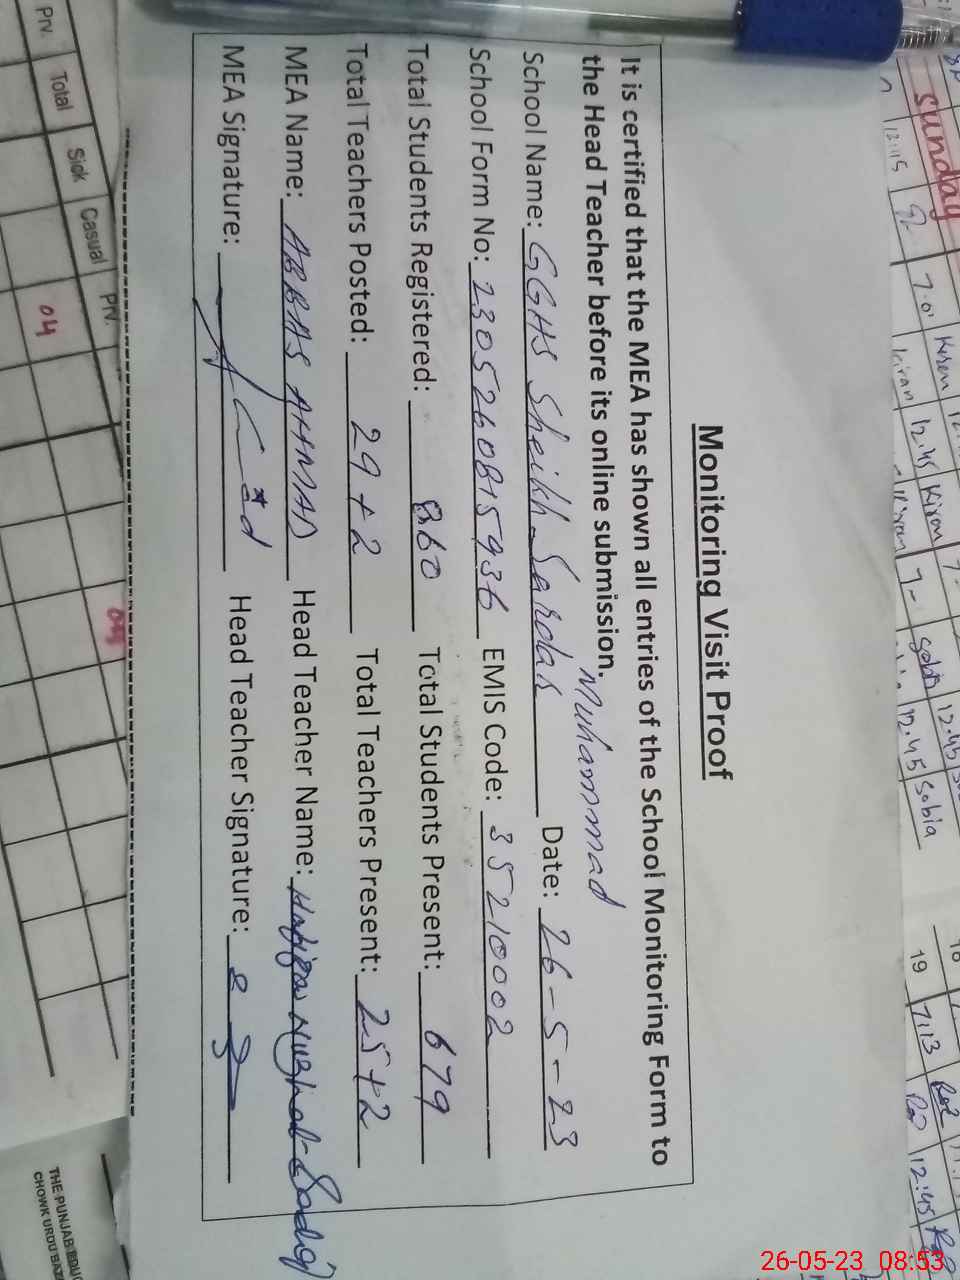 Monitoring Visit Proof
It is certified that the MEA has shown all entries of the School Monitoring Form to
the Head Teacher before its online submission.
Muhammad
School Name: GGHS Sheikh Sardar Date: 26-5-23
School Form No: 2305260815936 EMIS Code: 35210002
Total Students Registered: 860 Total Students Present: 679
Total Teachers Posted: 29+2 Total Teachers Present: 25+2
MEA Name: ABBAS AHMAD Head Teacher Name:
MEA Signature: Head Teacher Signature:
Prv. Total Sick Casual Prv.
04
Sunday
12:15
Kiran 12.45 Kiran 7-
Kiran 7- Sobia 12.45
12.45 Sobia
19 7:13
12:45
THE PUNJAB
CHOWK URDU
26-05-23 08:53